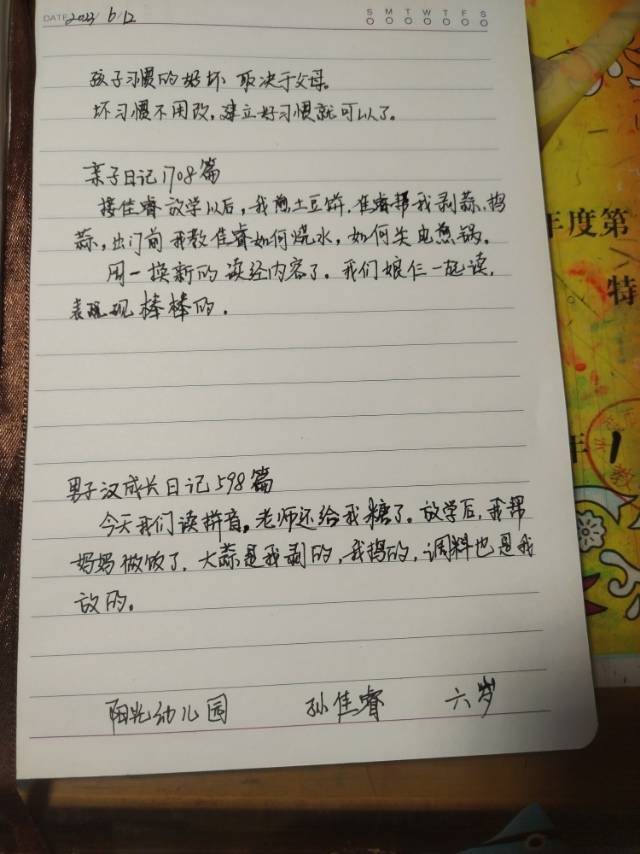 DATE 2023/ 6/12
S M T W T F S
孩子习惯的好坏 取决于父母。
坏习惯不用改,建立好习惯就可以了。
亲子日记1708篇
接佳睿放学以后,我煎土豆饼,佳睿帮我剥蒜,捣
蒜,出门前我教佳睿如何烧水,如何关电蒸锅。
周一换新的读经内容了。我们娘仨一起读,
表现 棒棒的。
男子汉成长日记598篇
今天我们读拼音,老师还给我糖了。放学后,我帮
妈妈做饭了,大蒜是我剥的,我捣的,调料也是我
放的。
阳光幼儿园 孙佳睿 六岁
年度第
特
1
教